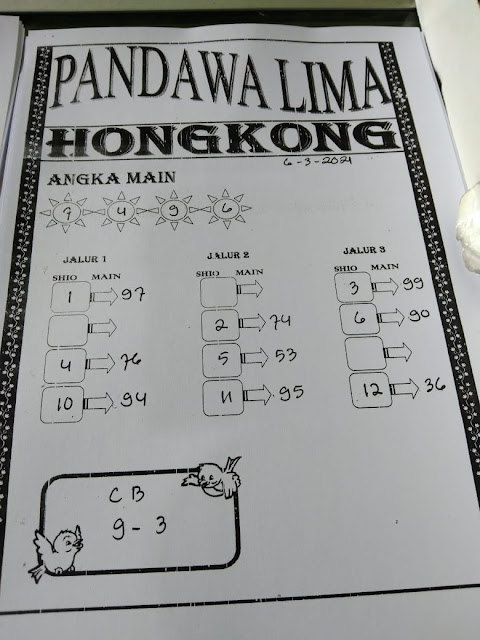 PANDAWA LIMA
HONGKONG
6-3-2021
ANGKA MAIN
7 4 9 6
JALUR 1
SHIO MAIN
1 97
4 76
10 94
JALUR 2
SHIO MAIN
2 74
5 53
11 95
JALUR 3
SHIO MAIN
3 99
6 90
12 36
CB
9-3